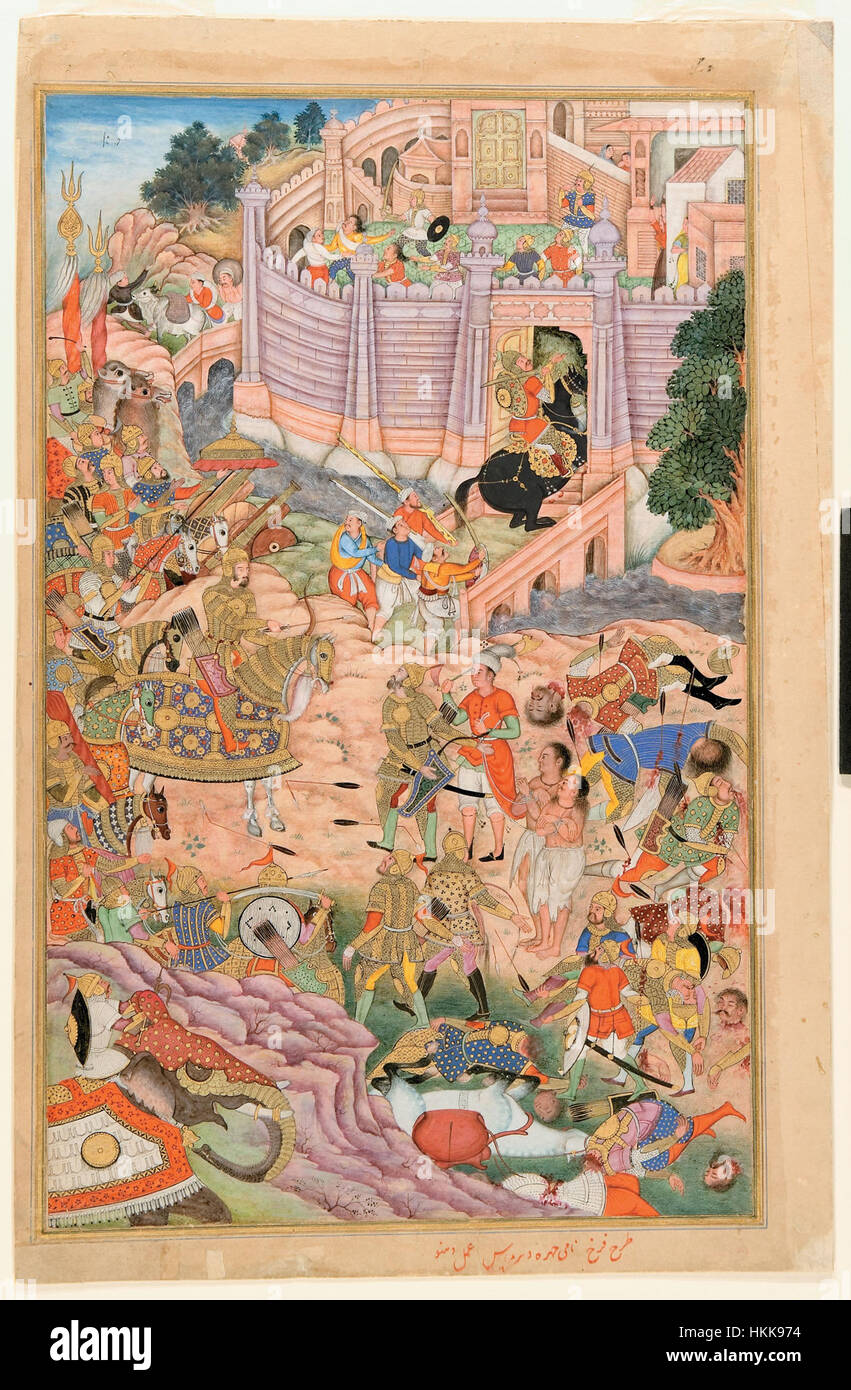 a
alamy
طرح فرخ نامی چهره دهرمداس عمل دهنو
alamy
Image ID: HKK974
www.alamy.com